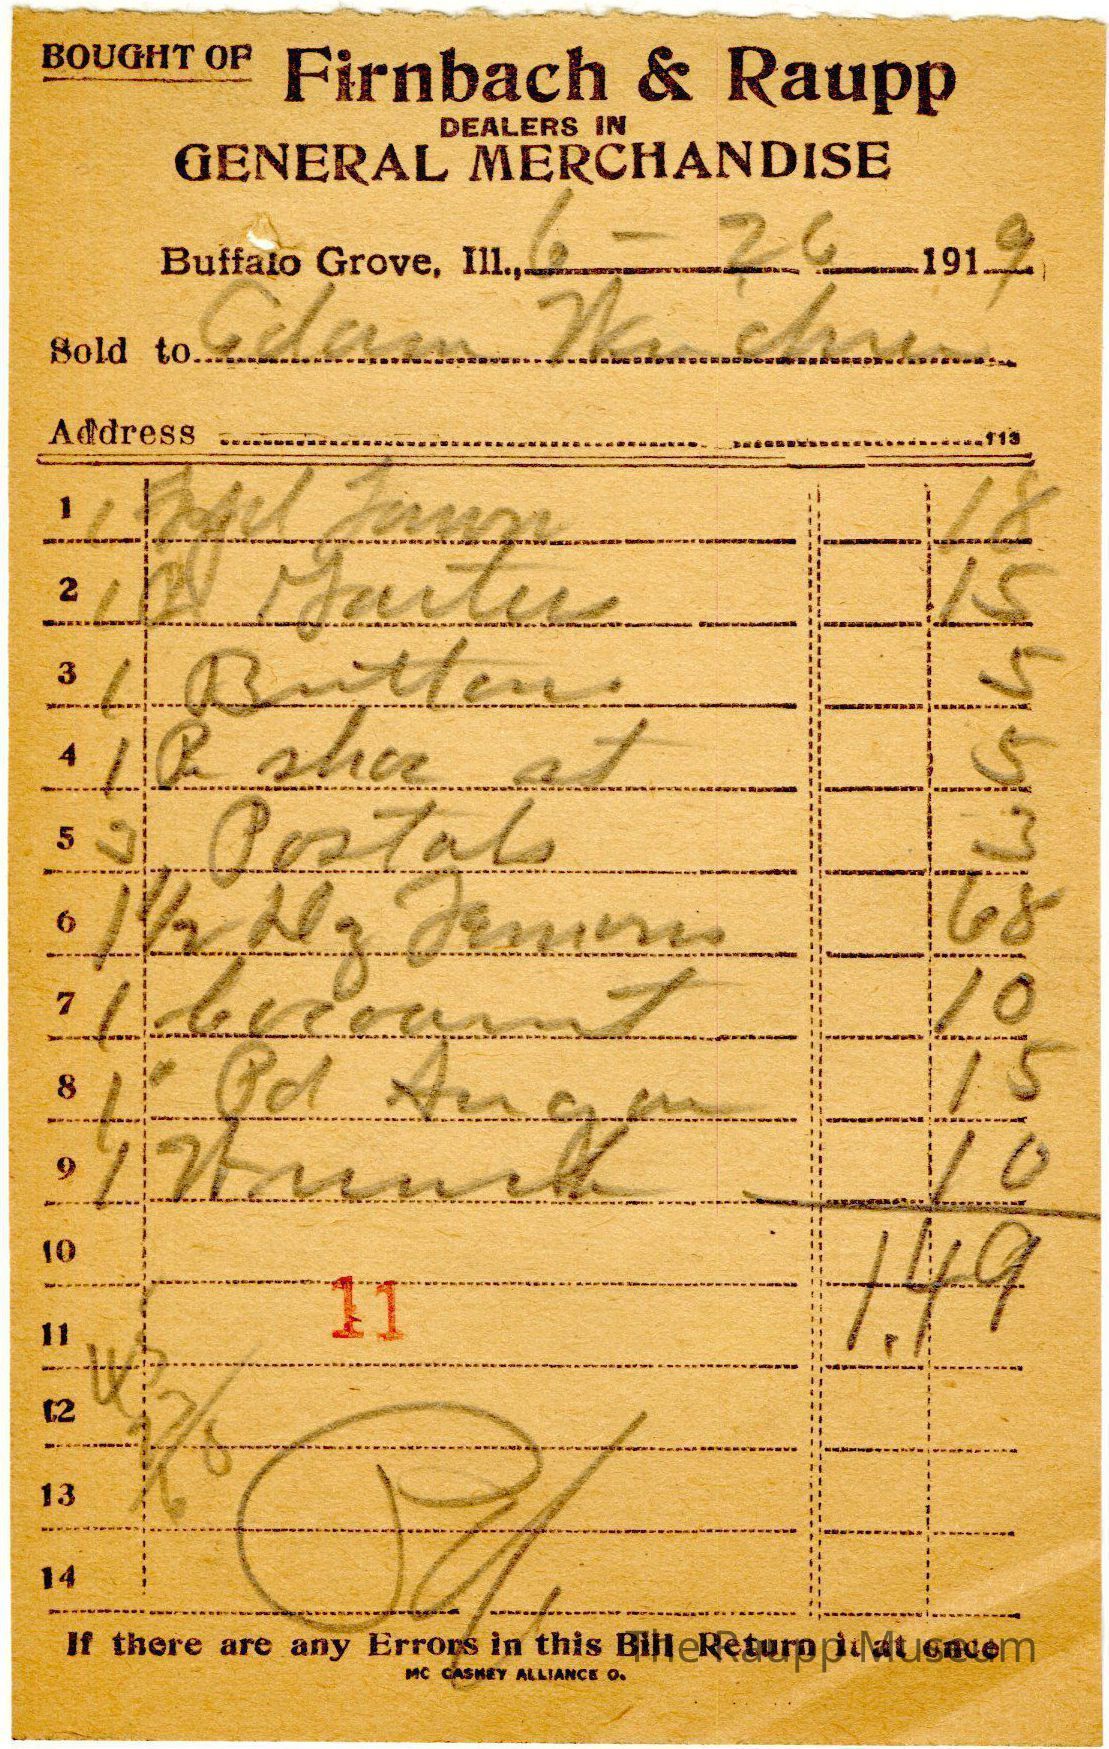 BOUGHT OF Firnbach & Raupp
DEALERS IN
GENERAL MERCHANDISE
Buffalo Grove, Ill., 6 - 26 1919
Sold to
Address 113
1 1 18
2 1 Garter 15
3 1 Button 5
4 1 Pr shoe st 5
5 3 Postals 3
6 1 1/2 Dz Lemons 68
7 1 Cocoanut 10
8 1 Pd 15
9 1 10
10 1.49
11 11
12
13
14
If there are any Errors in this Bill Return it at once
MC CASKEY ALLIANCE O.
The Raupp Museum